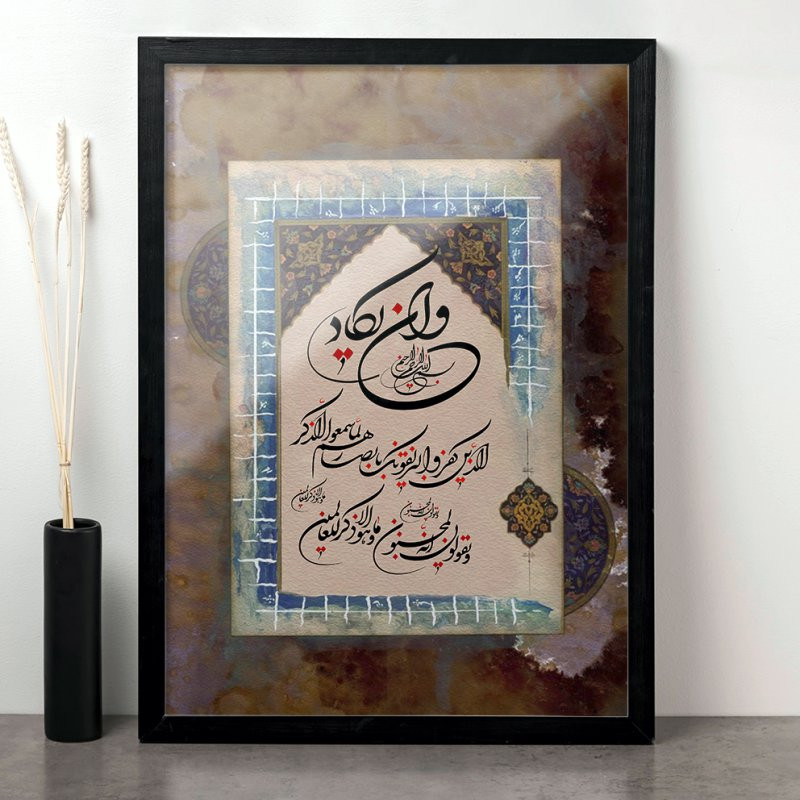 وان یکاد
بسم الله الرحمن الرحیم
الذین کفروا لیزلقونک بابصارهم لما سمعوا الذکر
و یقولون انه لمجنون و ما هو الا ذکر للعالمین